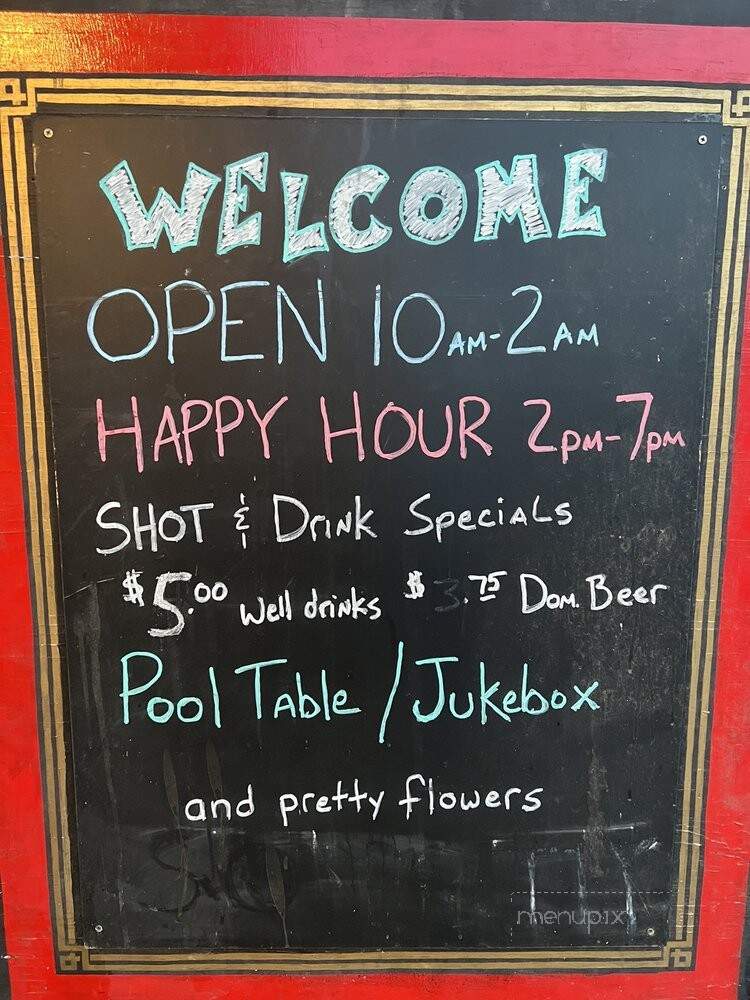 WELCOME
OPEN 10AM-2AM
HAPPY HOUR 2PM-7PM
SHOT & Drink Specials
$5.00 Well drinks $3.75 Dom. Beer
Pool Table / Jukebox
and pretty flowers
menupix